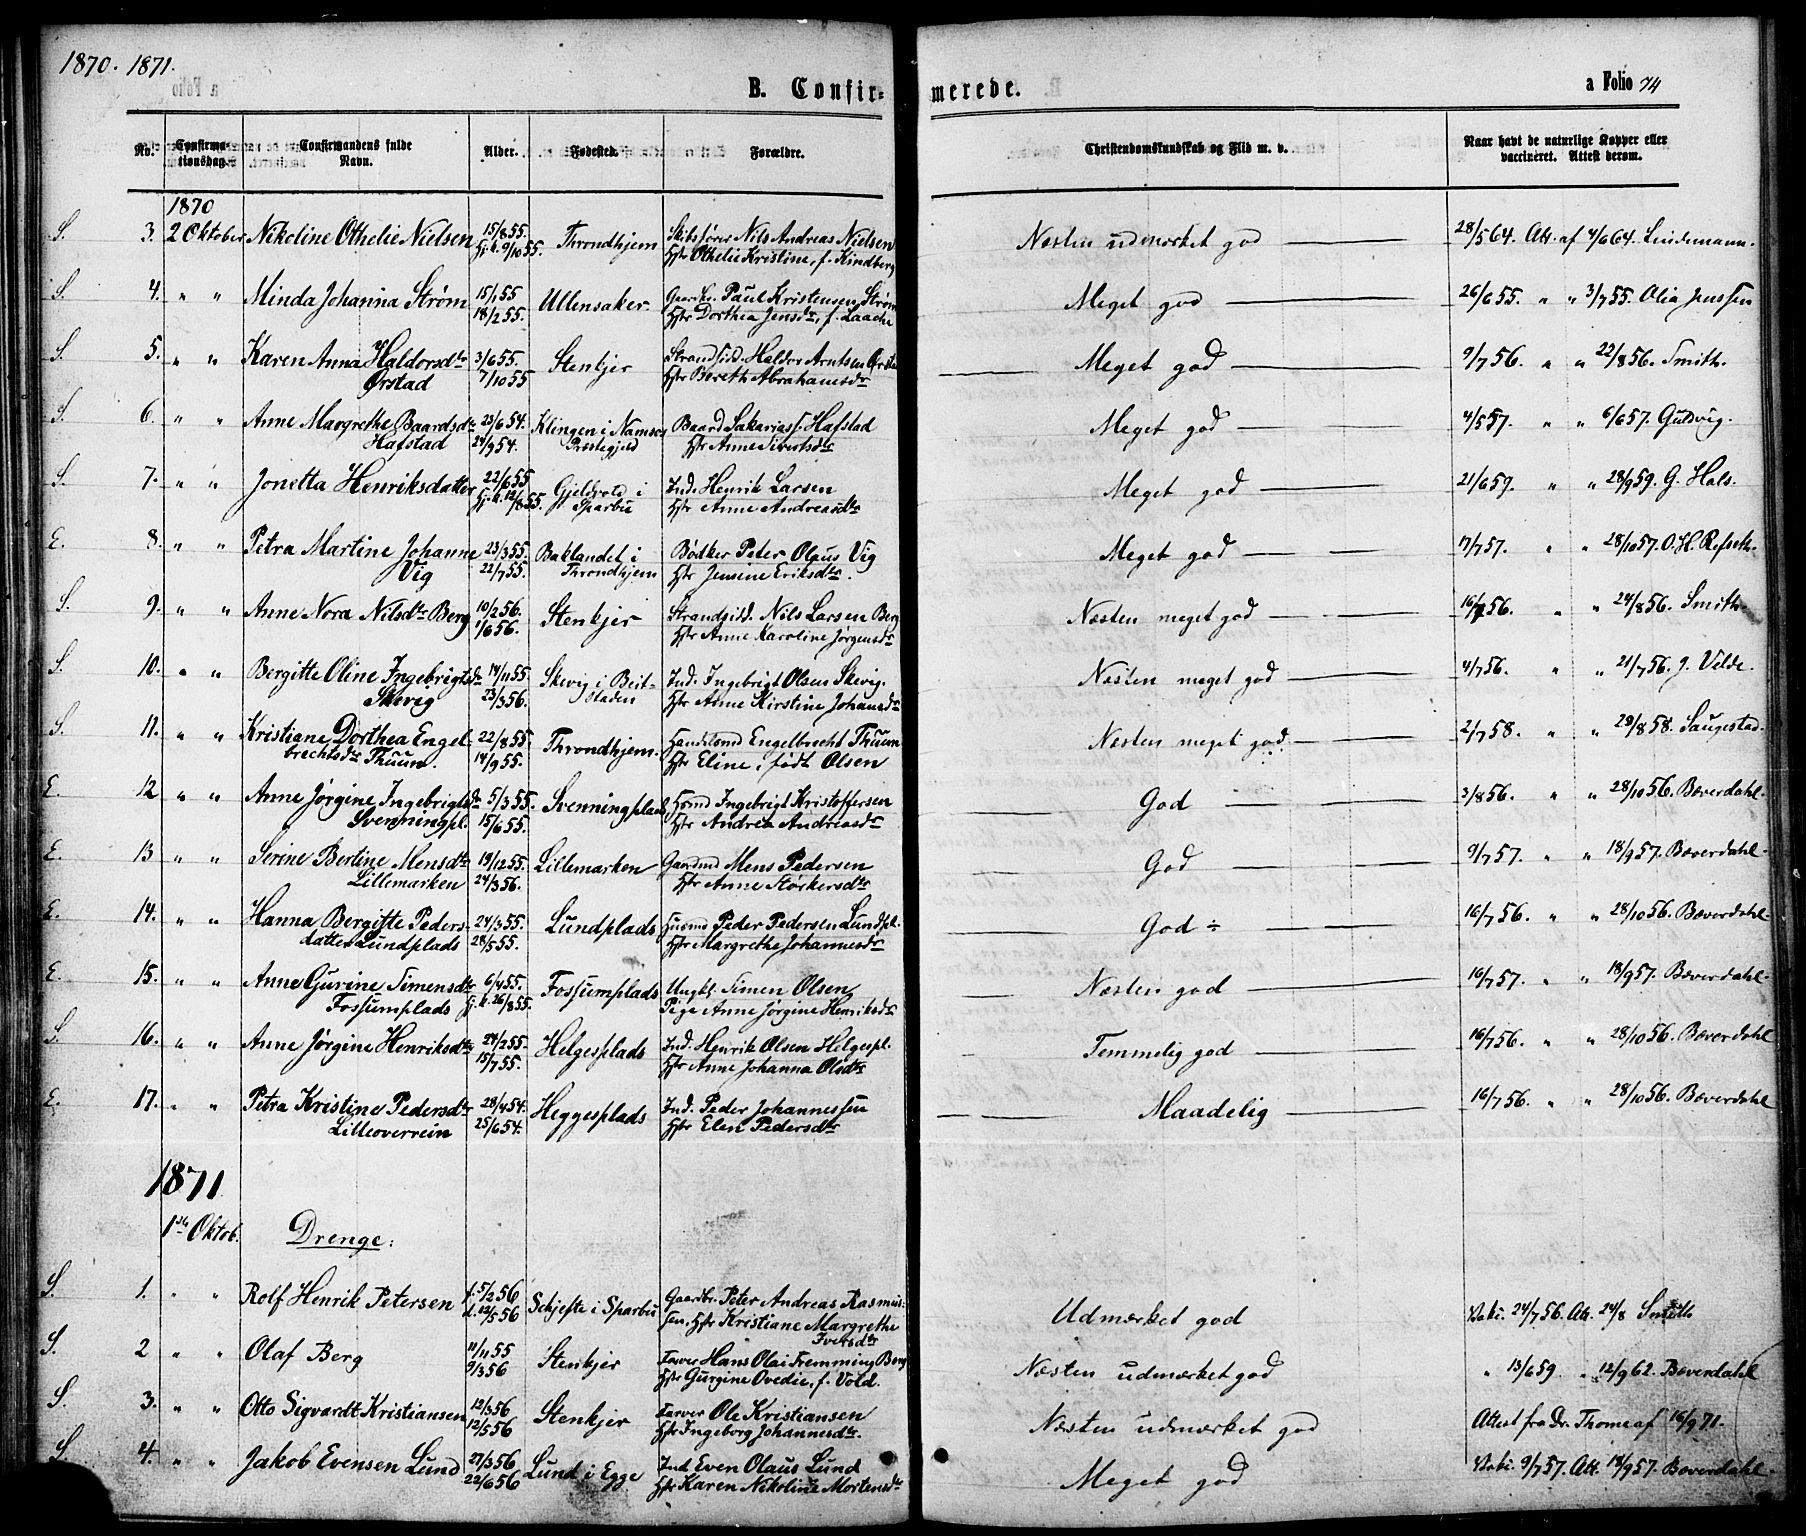 1870. 1871.
B. Confirmerede.
a Folio 74
No. Confirmationsdag. Confirmandens fulde Navn. Alder. Fødested. Forældre. Christendomskundskab og Flid m. v. Naar havt de naturlige Kopper eller vaccineret. Attest derom.
1870
S. 3. 2 Oktober Nikoline Othelie Nielsen 15/8 55. Throndhjem Skibsfører Nils Andreas Nielsen Næsten udmærket god 28/5 64. Att. af 4/6 64. Lindemann.
Hj. d. 9/10 55. Hstr Othelie Kristine, f. Kindberg
S. 4. " " Minda Johanna Strøm 15/1 55 Ullensaker. Paul Kristensen Strøm Meget god 26/6 55. " " 3/7 55. Olia Jenssen
18/2 55. Hstr Dorthea Jensdr, f. Laache
S. 5. " " Karen Anna Haldorsdtr 3/6 55. Stenkjer Strandsidd. Haldor Arntsen Ørstad Meget god 9/7 56. " " 22/8 56. Smith.
Ørstad 7/10 55 Hstr Bereth Abrahamsdr
S. 6. " " Anne Margrethe Baardsdtr 23/6 54. Klingen i Namsos Baard Sakariass. Hafstad Meget god 4/5 57. " " 6/6 57. Guldvig.
Hafstad 24/9 54. Præstegjeld Hstr Anne Sivertsdtr
S. 7. " " Jonetta Henriksdatter 22/6 55 Gjeldvold i Ind. Henrik Larsen Meget god 21/6 59. " " 28/9 59. G. Hals.
Hj. d. 12/8 55. Sparbu Hstr Anne Andreasdtr
E. 8. " " Petra Martine Johanne 23/3 55. Baklandet i Bødker Peter Olaus Vig Meget god 17/7 57. " " 28/10 57. O. H. Refseth.
Vig 22/7 55. Throndhjem Hstr Jensine Eriksdtr.
S. 9. " " Anne Nora Nilsdtr Berg 10/2 56. Stenkjer Strandsidd. Nils Larsen Berg Næsten meget god 16/7 56. " " 24/8 56. Smith.
1/6 56. Hstr Anne Karoline Jørgensdr
S. 10. " " Bergitte Oline Ingebrigtsdr 14/11 55. Skevig i Beit- Ind. Ingebrigt Olsen Skevig. Næsten meget god 4/7 56. " " 21/7 56. J. Velde.
Skevig 23/3 56. staden Hstr Anne Kirstine Johansdr
S. 11. " " Kristiane Dorthea Engel- 22/8 55. Throndhjem. Handelsmd Engelbrecht Thuum Næsten meget god. 2/7 58. " " 29/8 58. Saugestad.
brechtsdtr Thuum. 14/9 55. Hstr Eline, født Olsen
E. 12 " " Anne Jørgine Ingebrigtsdr 5/3 55. Svenningplads Husmd Ingebrigt Kristoffersen God 3/8 56. " " 28/10 56. Bæverdahl.
Svenningpl. 15/6 55. Hstr Andrea Andreasdr
E. 13 " " Serine Bertine Mensdtr 19/12 55. Lillemarken Gaardmd Mens Pedersen God 9/7 57. " " 18/9 57. Bæverdahl.
Lillemarken 24/3 56. Hstr Anne Størkersdtr
E. 14. " " Hanna Bergitte Peders- 24/3 55. Lundplads Husmd Peder Pedersen Lundpl. God ÷ 16/7 56. " " 28/10 56. Bæverdahl.
datter Lundplads 28/5 55. Hstr Margrethe Johannesdr
E. 15. " " Anne Gurine Simensdtr 6/4 55. Fossumplads Ungkl Simen Olsen Næsten god 16/7 57. " " 18/9 57. Bæverdahl.
Fossumplads Hj. d. 26/8 55. Pige Anne Jørgine Henriksdr
S. 16. " " Anne Jørgine Henriksdtr 24/2 55. Helgesplads Ind. Henrik Olsen Helgespl. Temmelig god 16/7 56. " " 28/10 56. Bæverdahl
15/7 55. Hstr Anne Johanna Olsdtr
E. 17. " " Petra Kristine Pedersdtr 28/4 54. Heggesplads Ind. Peder Johannessen Maadelig 16/7 56. " " 28/10 56. Bæverdahl
Lilleoverrein 25/6 54. Hstr Elen Pedersdtr
1871
1ste Oktob. Drenge:
S. 1. " " Rolf Henrik Petersen f. 5/2 56 Schjefte i Sparbu Gaardbr. Peter Andreas Rasmus- Udmærket god Vaki. 24/7 56. Att. 24/8 Smith
d. 12/5 56 sen, Hstr Kristiane Margrethe Iversdtr
S. 2 " " Olaf Berg 11/11 55 Stenkjer Farver Hans Olai Fremming Berg Næsten udmærket god " 13/6 59. " 12/9 62. Bæverdahl
9/3 56 Hstr Gurgine Ovedie, f. Vold.
S. 3. " " Otto Sigvardt Kristiansen 12/3 56 Stenkjer Farver Ole Kristiansen Næsten udmærket god Attest fra Dr. Thome af 16/9 71.
12/5 56 Hstr Ingeborg Johannesdtr.
S. 4. " " Jakob Evensen Lund 27/3 56 Lund i Egge Ind Even Olaus Lund Meget god Vaki. 9/7 57. Att. 18/9 57. Bæverdahl.
22/6 56 Hstr Karen Nikoline Mortensdtr